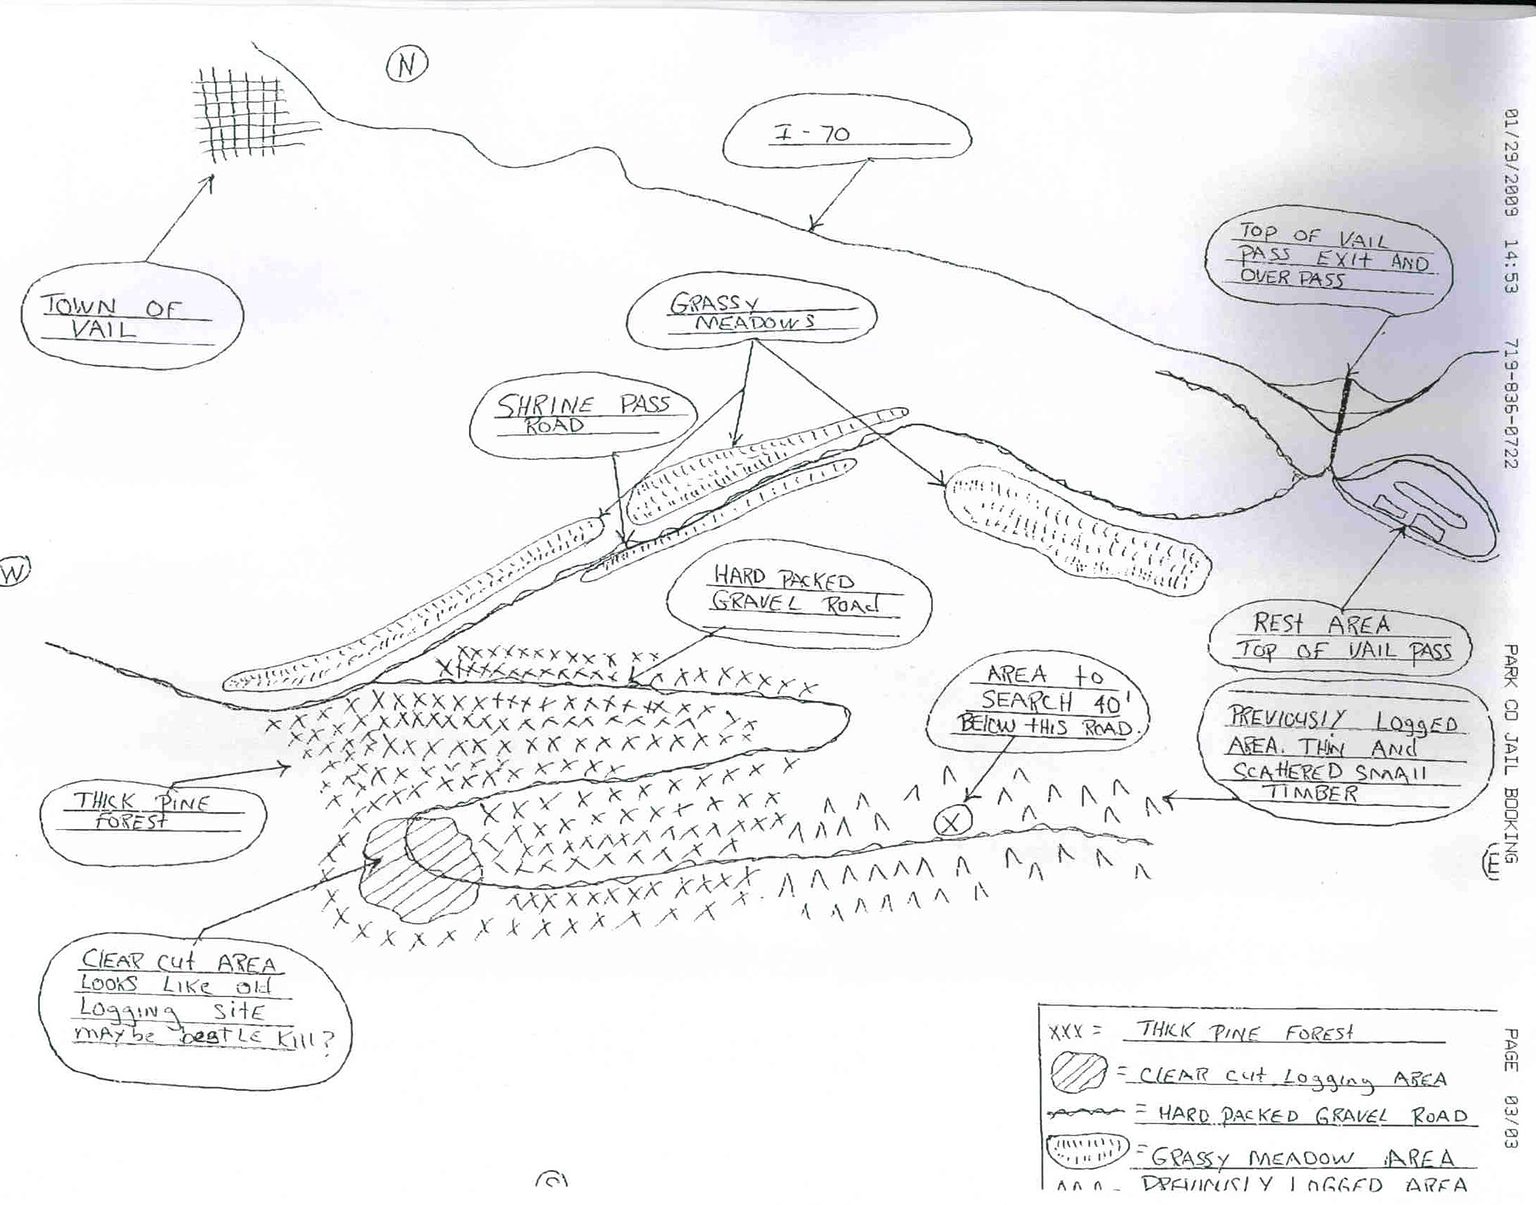 N
I-70
TOP OF VAIL
PASS EXIT AND
OVER PASS
TOWN OF
VAIL
GRASSY
MEADOWS
SHRINE PASS
ROAD
W
HARD PACKED
GRAVEL ROAd
REST AREA
TOP OF VAIL PASS
AREA to
SEARCH 40'
BELOW tHIS ROAD.
PREVIOUSLY LOggED
AREA. THIN ANd
SCAHERED SMAll
TIMBER
THICK PINE
FOREST
X
E
ClEAR Cut AREA
LOOKS LIKE Old
LOggINg SitE
mAybe beetLE Kill?
XXX = THICK PINE FORESt
= ClEAR Cut Loggiyg AREA
= HARD PACKED GRAVEL ROAD
= GRASSY MEADOW AREA
PREVIOUSLY LOGGED AREA
S
01/29/2009 14:53 719-836-0722 PARK CO JAIL BOOKING PAGE 03/03